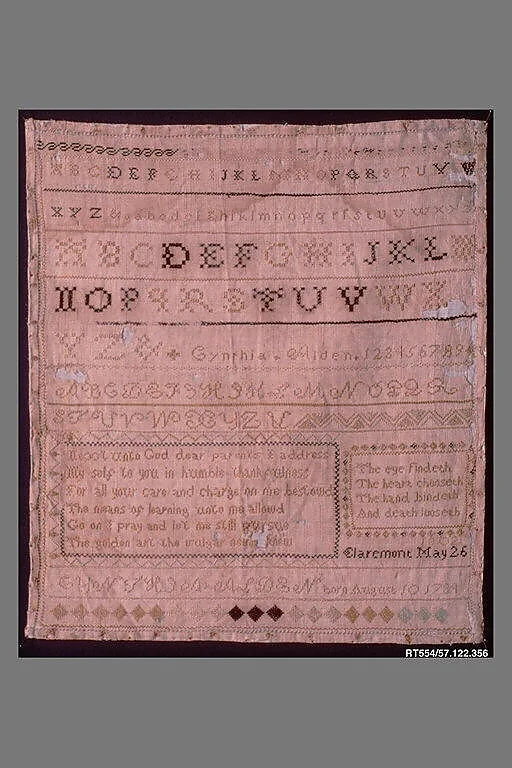 A B C D E F G H I J K L M N O P Q R S T U V W
X Y Z & a b c d e f g h i k l m n o p q r s t u v w x
A B C D E F G H I J K L M
N O P Q R S T U V W X
Y Z & Cynthia Alden. 1 2 3 4 5 6 7 8 9
A B C D E F G H I K L M N O P Q R
S T U V W X Y Z
Next unto God dear parents I address
My self to you in humble thankfulness
For all your care and charge on me bestowd
The means of learning unto me allowd
Go on I pray and let me still pursue
The golden art the vulgar never knew
The eye findeth
The heart chooseth
The hand bindeth
And death looseth
Claremont May 26
CYNTHIA ALDEN born August 10 178
RT554/57.122.356